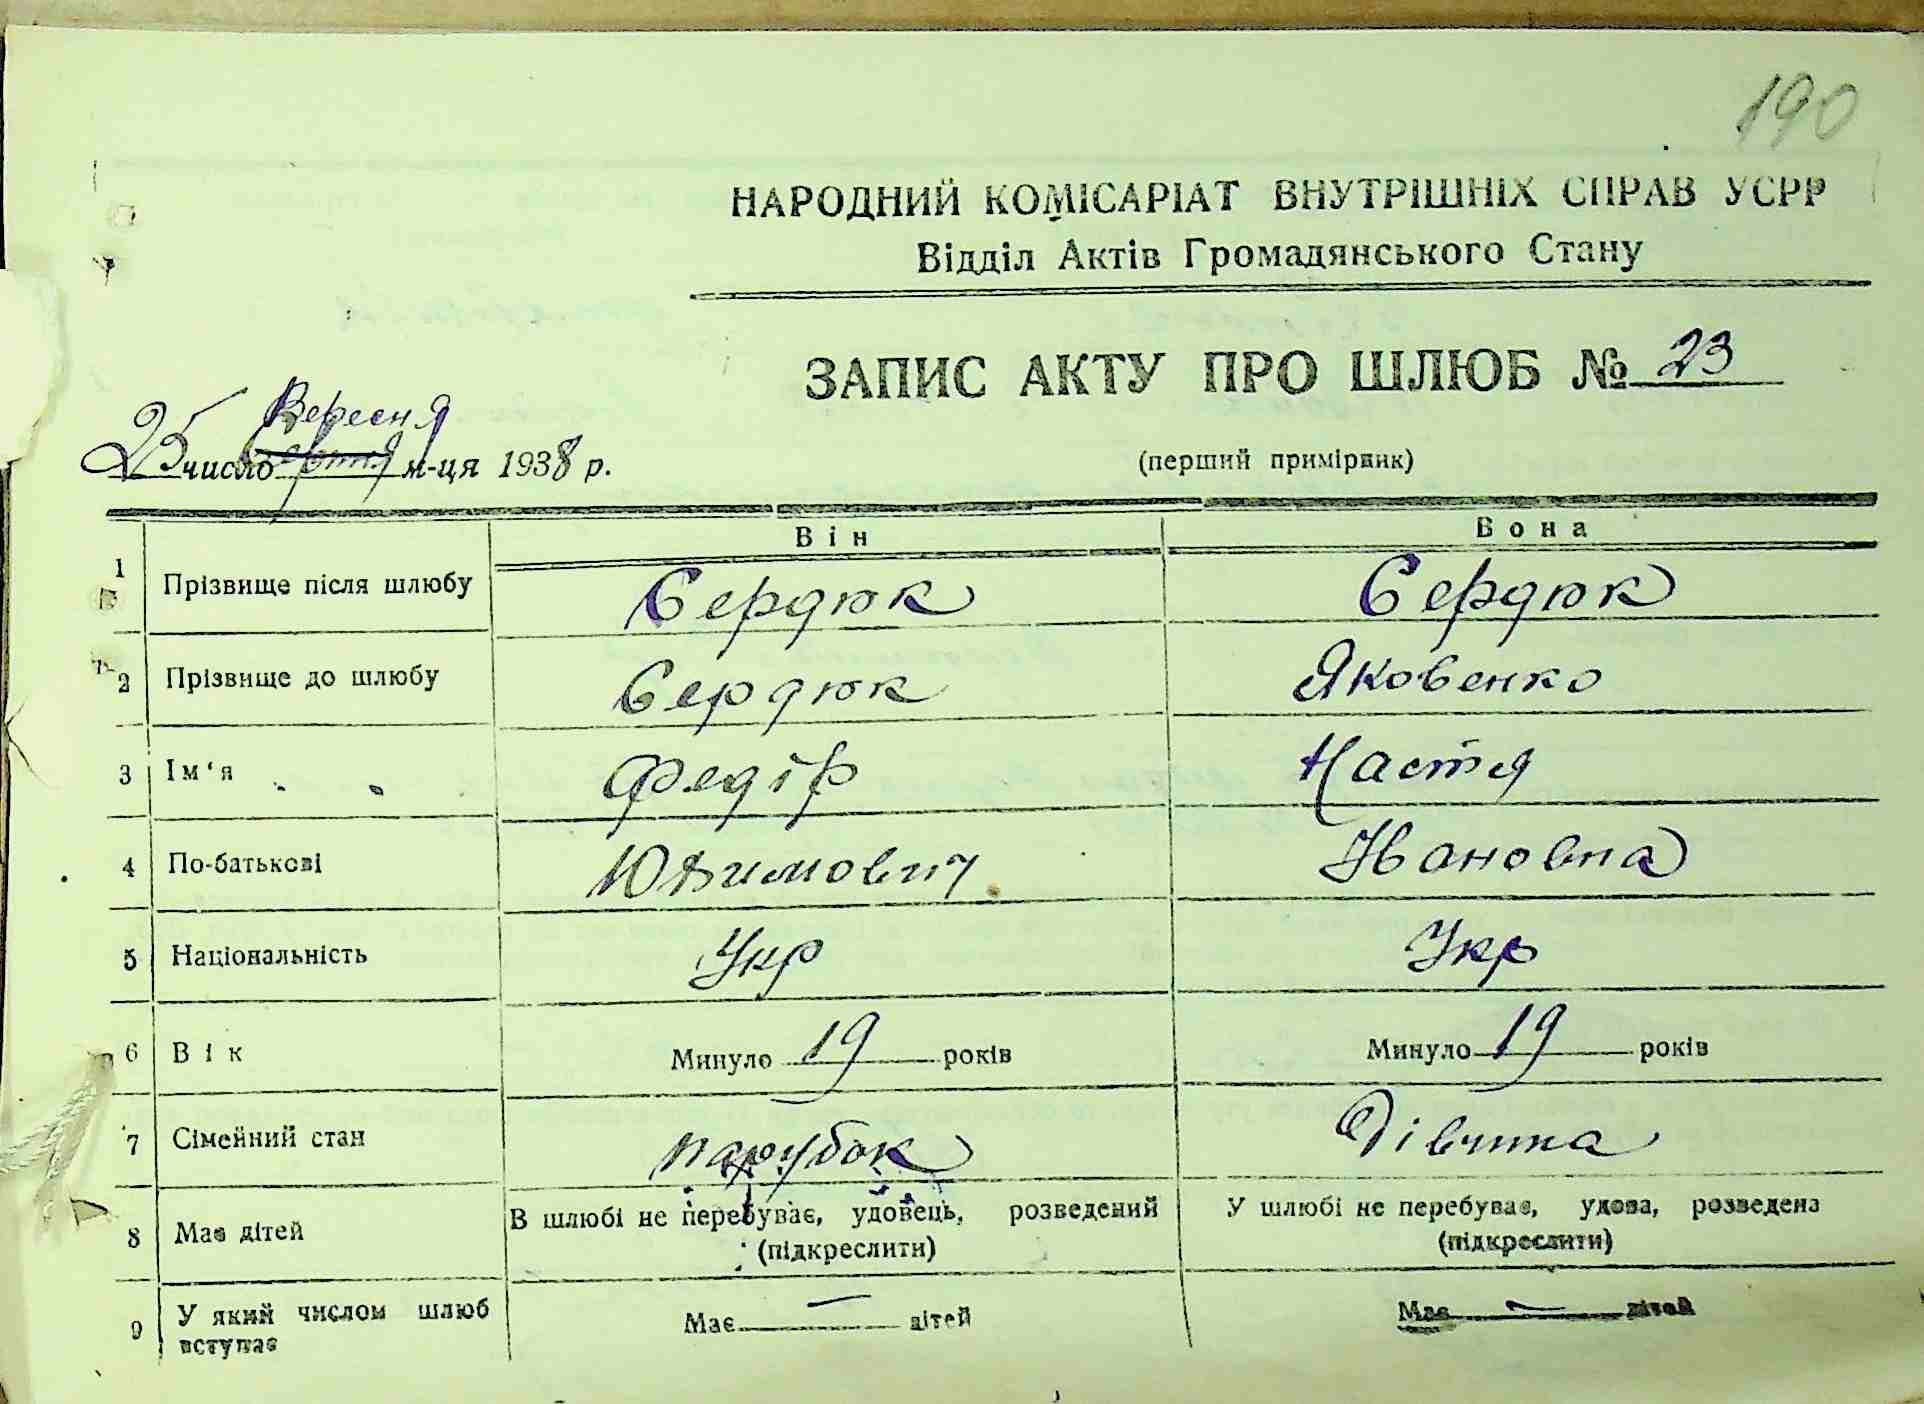 190
НАРОДНИЙ КОМІСАРІАТ ВНУТРІШНІХ СПРАВ УСРР
Відділ Актів Громадянського Стану
ЗАПИС АКТУ ПРО ШЛЮБ № 23
Вересня
25 число м-ця 1938 р.
(перший примірник)
Він Вона
1 Прізвище після шлюбу Сердюк Сердюк
2 Прізвище до шлюбу Сердюк Яковенко
3 Ім‘я Федір Настя
4 По-батькові Юхимович Ивановна
5 Національність Укр Укр
6 Вік Минуло 19 років Минуло 19 років
7 Сімейний стан парубок Дівчина
8 Має дітей В шлюбі не перебуває, удовець, розведений У шлюбі не перебуває, удова, розведена
(підкреслити) (підкреслити)
9 У який числом шлюб вступає Має — дітей Має — дітей